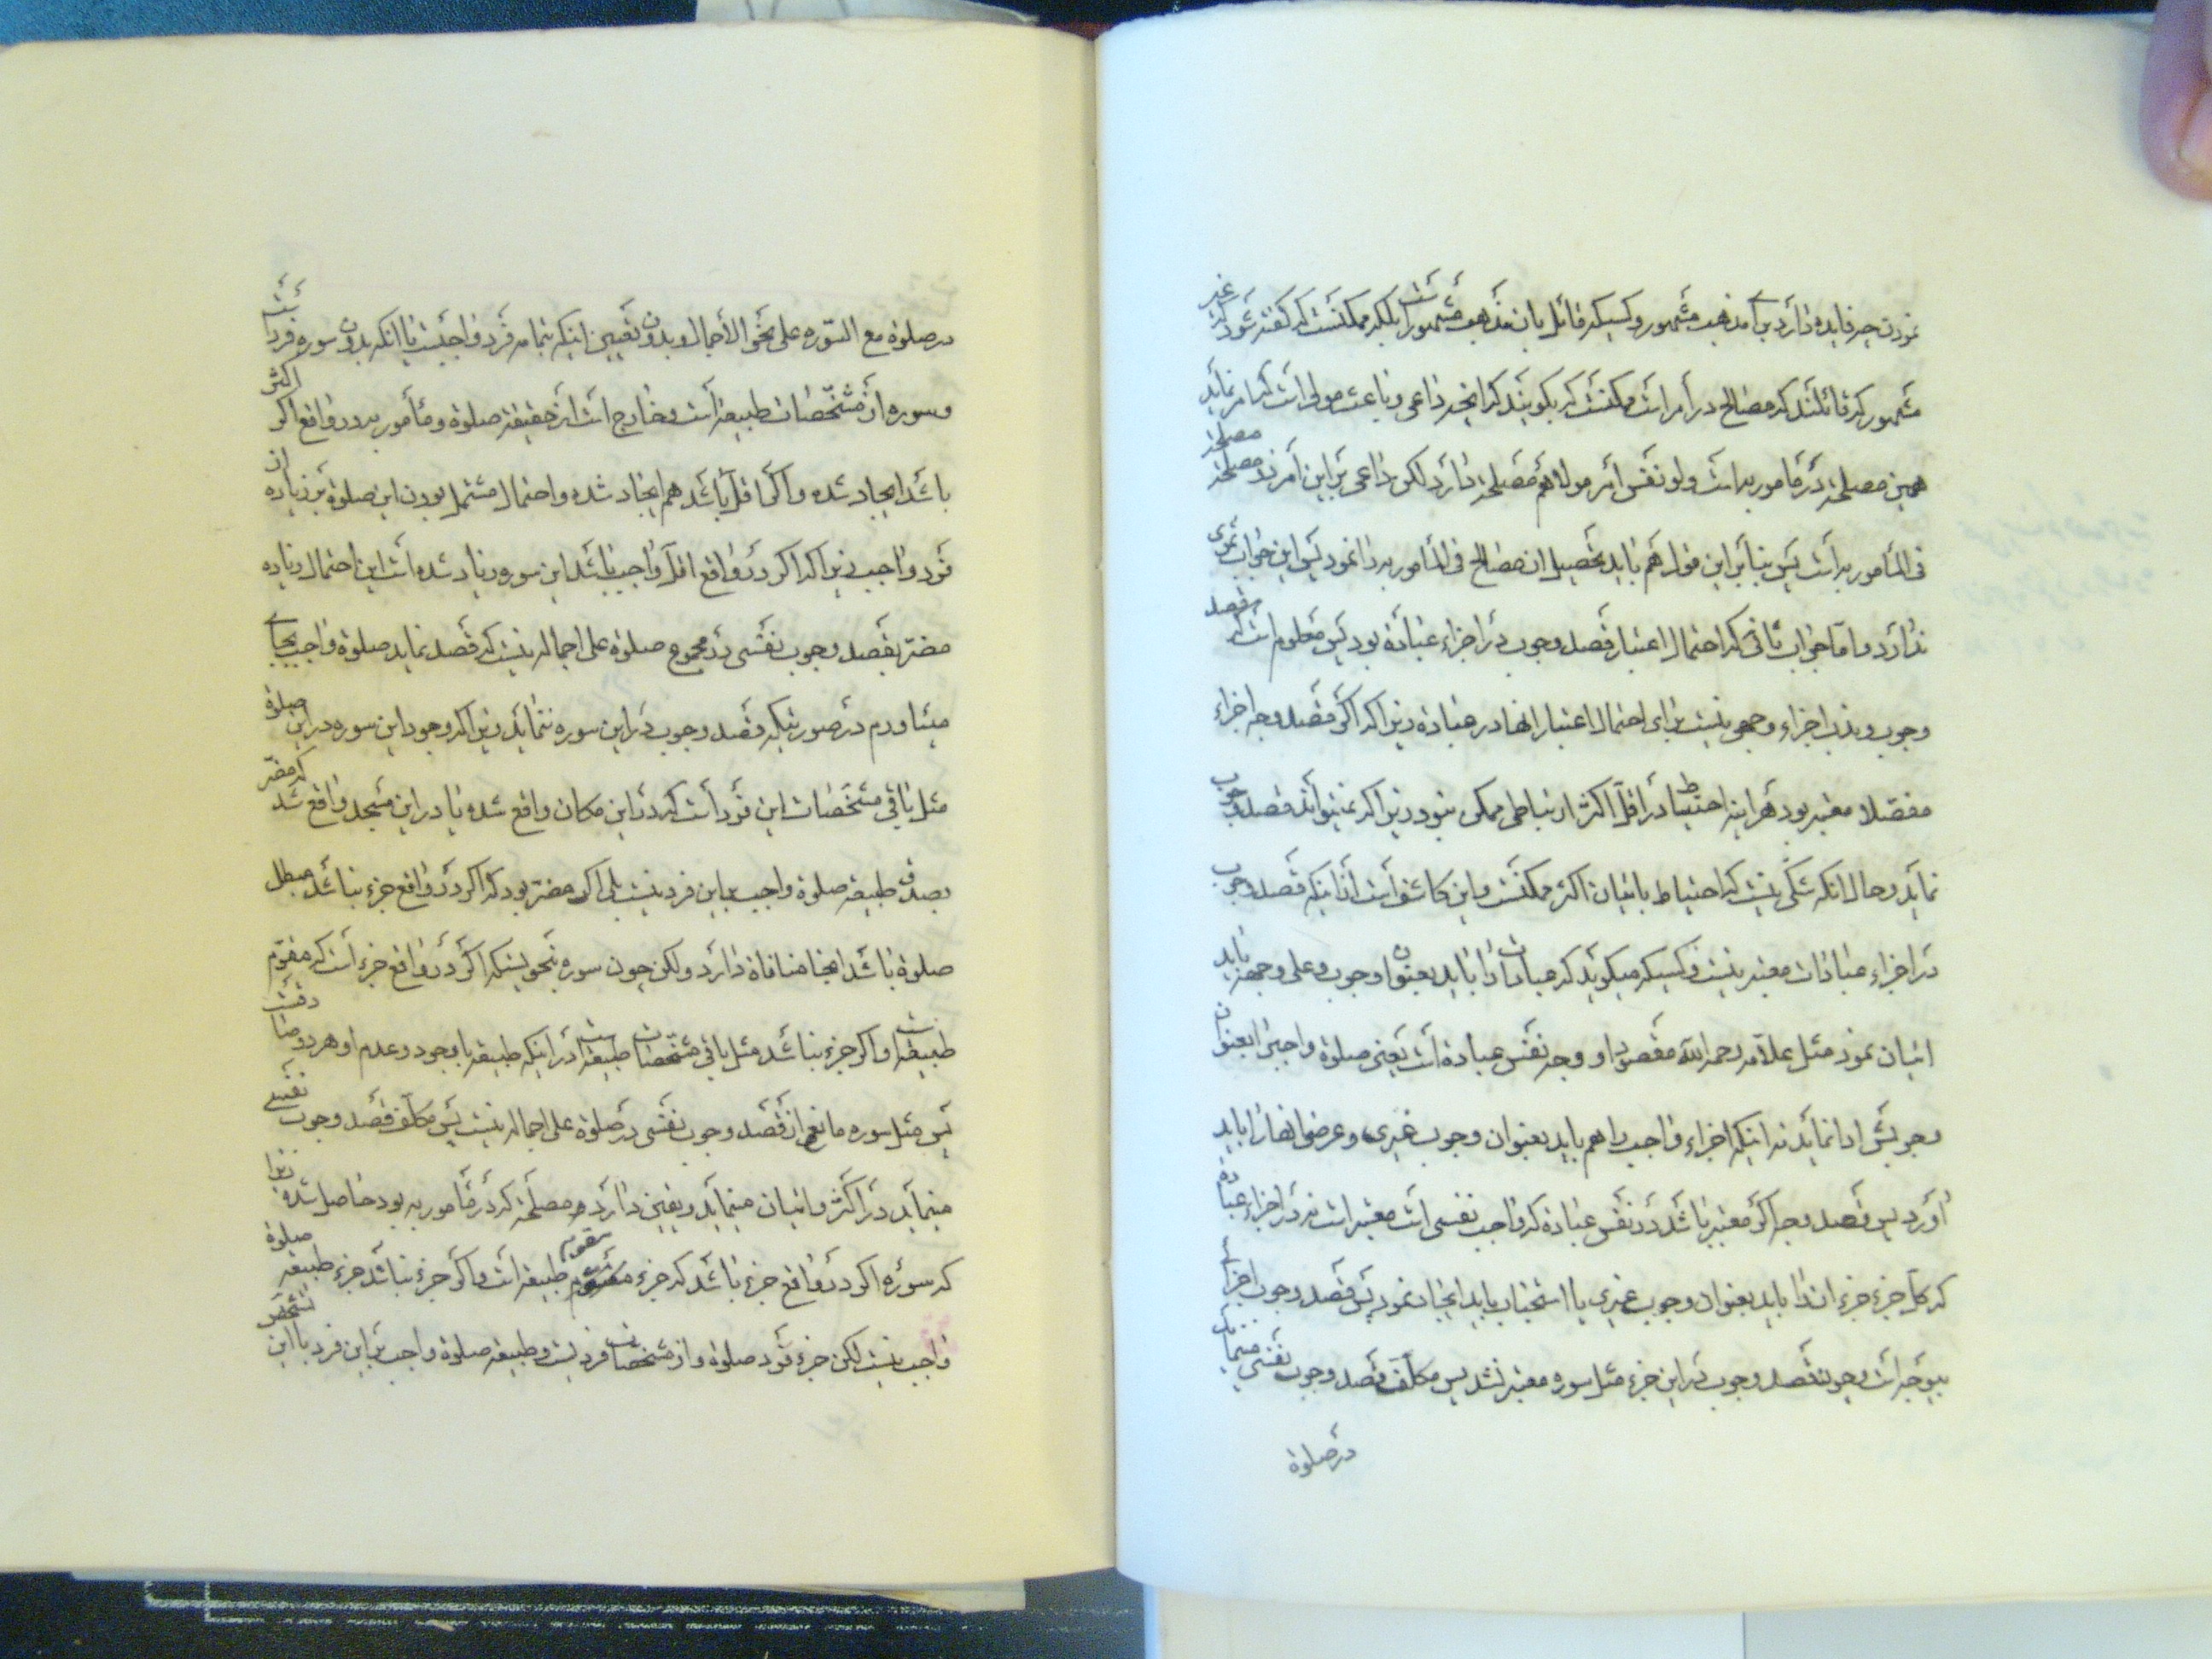 نمودن چه فایده دارد بر مذهب مشهور و کسیکه قائل بان مذهب مشهور است بلکه ممکنست که گفته شود که غیر
مشهور که قائلند که مصالح در امر است ممکنست که بگویند که انچه داعی و باعث مولی است که امر نماید
همین مصلحة در مامور به است ولو نفس امر مولا هم مصلحة دارد لکن داعی بر این امر نزد مصلحة
فی المأمور به است پس بنابر این قول هم باید تحصیل ان مصالح فی المأمور به را نمود پس این جواب ثمری
ندارد و اما جواب ثانی که احتمال اعتبار قصد وجوب در اجزاء عبادة بود پس معلوم است که قصد
وجوب و ندب اجزاء وجهی نیست برای احتمال اعتبار انها در عبادة زیرا که اگر قصد وجه اجزاء
مفصلا معتبر بود هراینه احتیاط در اقل اکثر ارتباطی ممکن نبود زیرا که نمیتواند قصد وجوب
نماید و حال انکه شکی نیست که احتیاط باتیان اکثر ممکنست و این کاشف است از اینکه قصد وجوب
در اجزاء عبادات معتبر نیست و کسیکه میگوید که عبادات را باید بعنوان وجوب و علی وجهه باید
اتیان نمود مثل علامه رحمه الله مقصود او وجه نفس عبادة است یعنی صلوة واجب را بعنوان
وجوبش ادا نماید نه اینکه اجزاء واجب را هم باید بعنوان وجوب غیری و عرضی انها را باید
آورد پس قصد وجه اگر معتبر باشد در نفس عبادة که واجب نفسی است معتبر است نه در اجزاء عبادة
که کل جزء جزء ان را باید بعنوان وجوب غیری یا استحباب باید ایجاد نمود پس قصد وجوب اجزاء
بیوجه است و چون قصد وجوب در این جزء مثل سوره معتبر نشد پس مکلف قصد وجوب نفسی مینماید
در صلوة
در صلوة مع السوره علی نحو الاجمال و بدون تعیین اینکه بتمامه فرد واجبست یا انکه بدون سوره فرد است
و سوره از مشخصات طبیعة است و خارج است از حقیقة صلوة و مأمور به در واقع اگر اکثر
باشد ایجاد شده و اگر اقل باشد هم ایجاد شده و احتمال مشتمل بودن این صلوة بر زیاده از
فرد واجب زیرا که اگر در واقع اقل واجب باشد این سوره زیاد شده است این احتمال زیاده
مضر بقصد وجوب نفسی در مجموع صلوة علی اجماله نیست که قصد نماید صلوة واجب بجای
میاورم در صورتیکه قصد وجوب در این سوره ننماید زیرا که وجود این سوره در این صلوة
مثل باقی مشخصات این فرد است که در این مکان واقع شده یا در این مسجد واقع شد که مضر
بصدق طبیعة صلوة واجب بر این فرد نیست بلی اگر مضر بود که اگر در واقع جزء نباشد مبطل
صلوة باشد اینجا منافاة دارد ولکن چون سوره بنحویستکه اگر در واقع جزء است که مقوم
طبیعة است و اگر جزء نباشد مثل باقی مشخصات طبیعة است در اینکه طبیعة با وجود و عدم او هر دو صادقست
پس مثل سوره مانع از قصد وجوب نفسی در صلوة علی اجماله نیست پس مکلف قصد وجوب نفسی
مینماید در اکثر و اتیان مینماید و یقین دارد مصلحة که در مأمور به بود حاصل شده زیرا
که سوره اگر در واقع جزء باشد که جزء مقوم طبیعة است و اگر جزء نباشد جزء طبیعة صلوة
واجب نیست لکن جزء فرد صلوة و از مشخصات فرد است و طبیعة صلوة واجب بر این فرد با این تشخص